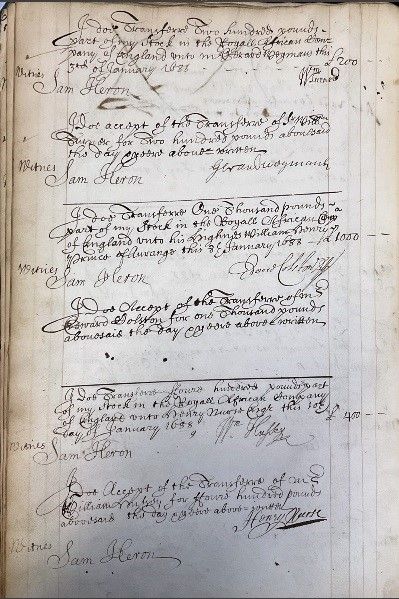 I doe Transferre Two hundred pounds
part of my Stock in the Royall African Com
pany of England unto mr Gerard Weymans this
3d of January 1688 - £ 200
Witnes
Sam Heron
I doe accept of the Transferre of Sr Wm
Turner for Two hundred pounds abovesaid
the day & yeere above written
Witnes
Gerard Weymans
Sam Heron
I doe Transferre One Thousand pounds
part of my Stock in the Royall African Comp
of England unto his Highnes William Henry
Prince of Aurange this January 1688 - £ 1000
Witnes
Sam Heron
I Doe Accept of the Transferre of mr
Edward Colston for one Thousand pounds
abovesaid the day & yeere above written
I Doe Transferre Foure hundred pounds part
of my Stock in the Royall African Company
of England unto Henry Nurse Esqr this 10t
day of January 1688 £ 400
Witnes
Sam Heron
I Doe Accept of the Transferre of mr
William for Foure hundred pounds
abovesaid the day & yeere above written
Henry Nurse
Witnes
Sam Heron